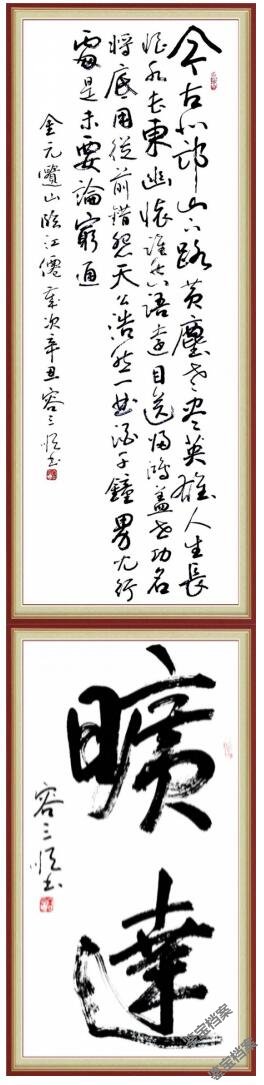 今古北邙山下路黃塵老盡英雄人生長
恨水長東幽懷誰共語遠目送歸鴻蓋世功名
將底用從前錯怨天公浩然一曲酒千鐘男兒行
處是未要論窮通
金元遺山臨江僊 歲次辛丑容三順書
曠達
容三順書
鉴宝档案